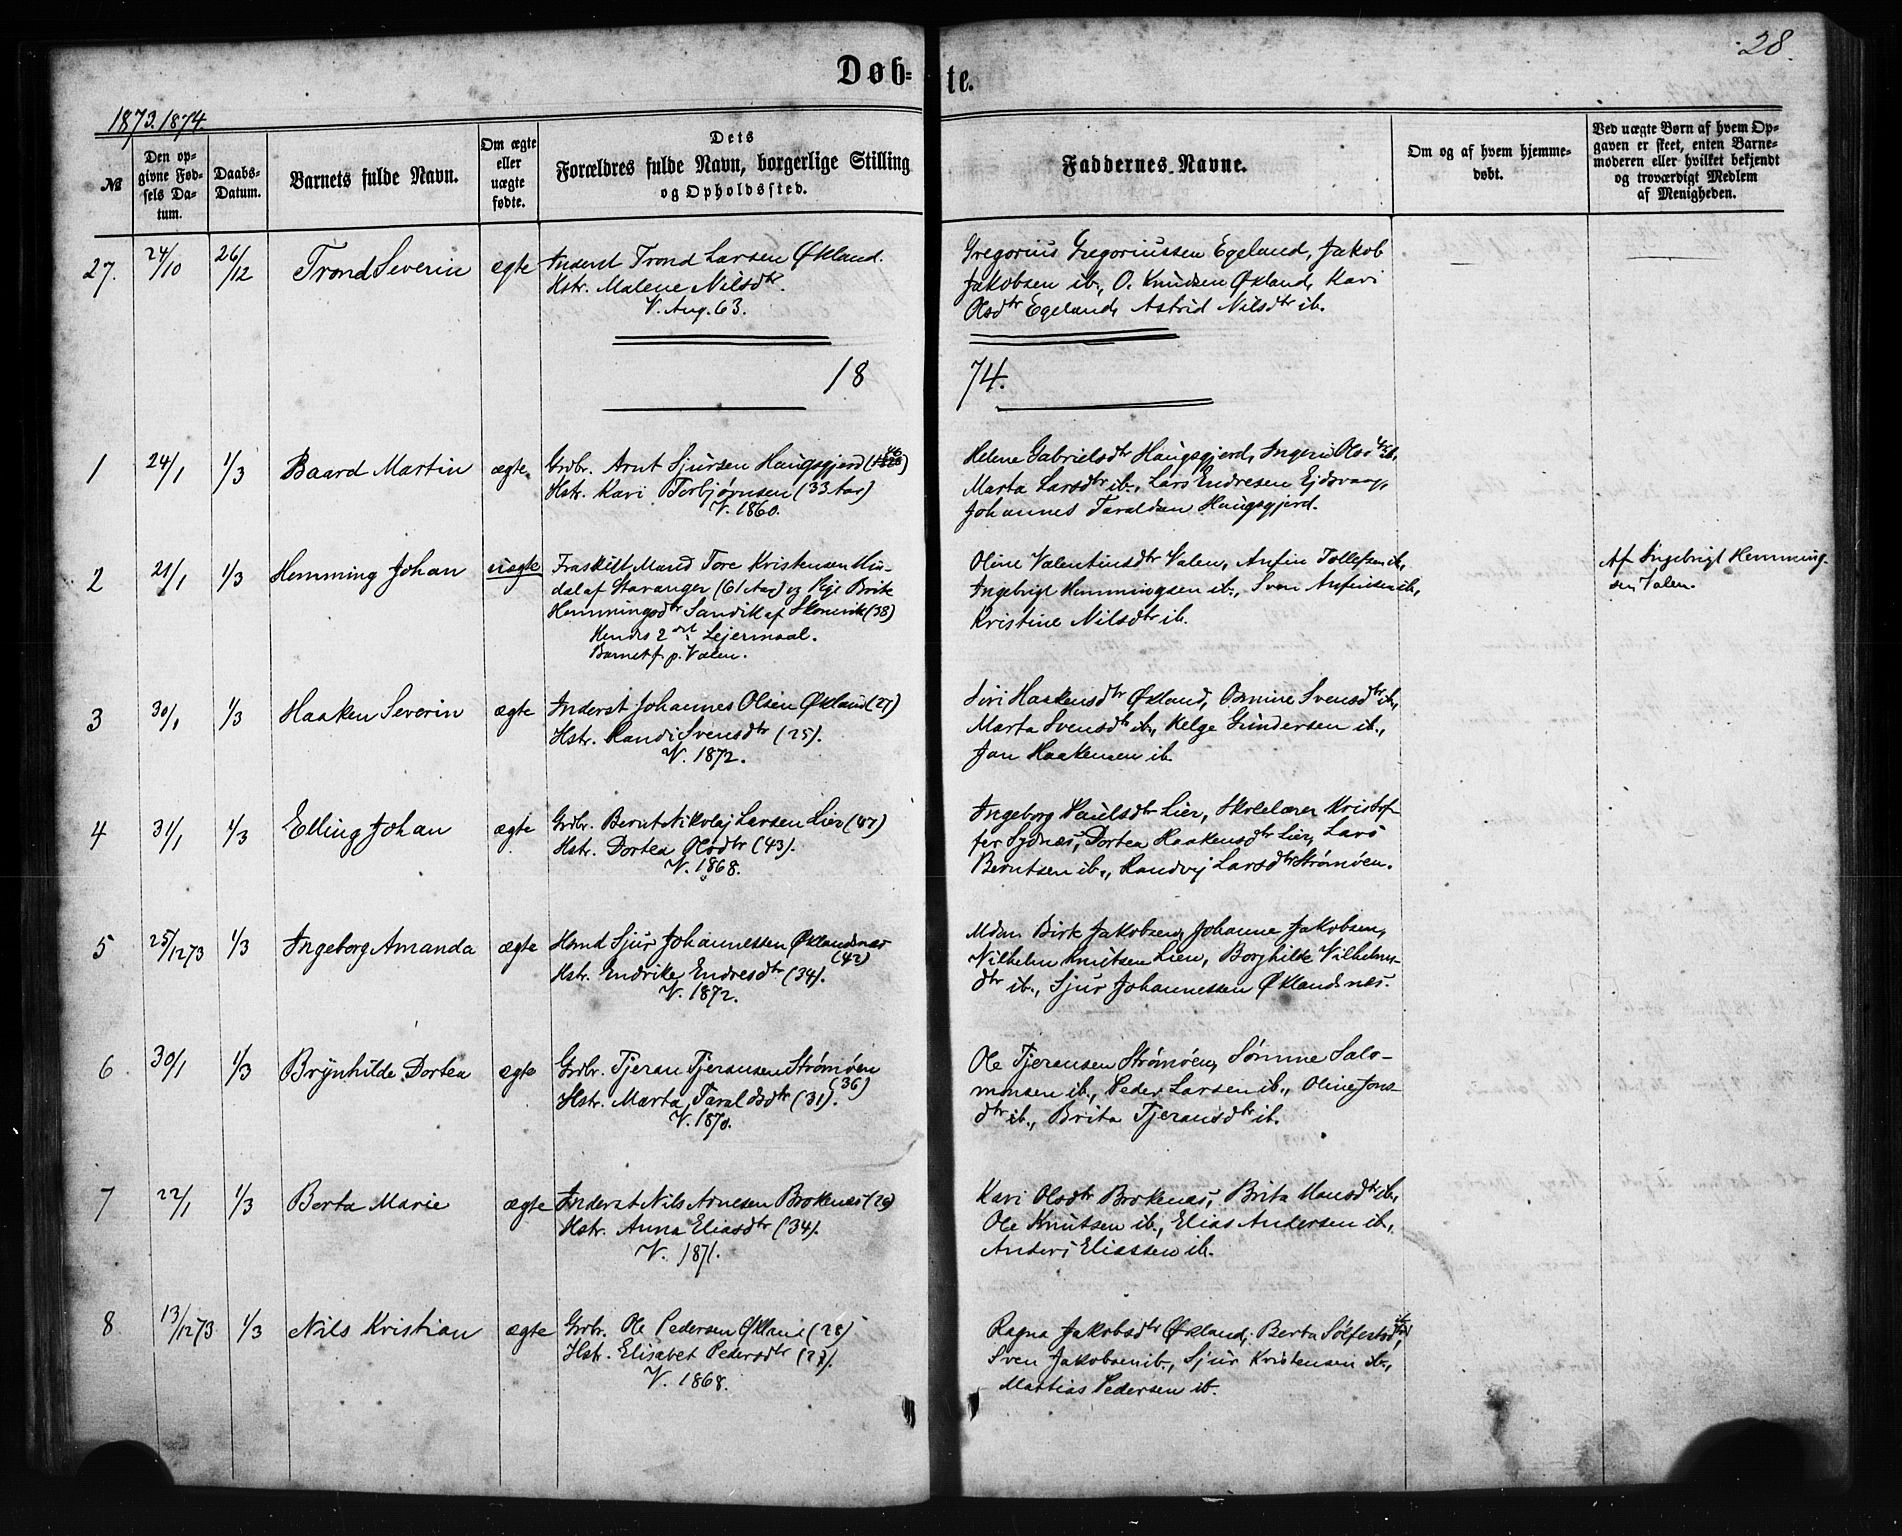 28.
Døb-te.
1873.1874.
№
Den op-
givne Fød-
sels Da-
tum.
Daabs-
Datum.
Barnets fulde Navn.
Om ægte
eller
uægte
fødte.
Dets
Forældres fulde Navn, borgerlige Stilling
og Opholdssted.
Faddernes Navne.
Om og af hvem hjemme-
døbt.
Ved uægte Børn af hvem Op-
gaven er skeet, enten Barne-
moderen eller hvilket bekjendt
og troværdigt Medlem
af Menigheden.
27. 24/10 26/12 Trond Severin ægte Inderst Trond Larsen Økland.
Hstr. Malene Nilsdtr.
V. Aug. 63.
Gregorius Gregoriussen Egeland, Jakob
Jakobsen ib., O. Knudsen Økland, Kari
Olsdtr Egeland, Astrid Nilsdtr ib.
18 74.
1 24/1 1/3 Baard Martin ægte Grdbr. Arnt Sjursen Haugsgjerd
Hstr. Kari Torbjørnsen (33 Aar)
V. 1860.
Helene Gabrielsdtr Haugsgjerd, Ingeri Olsdtr ib.,
Marta Larsdtr ib., Lars Endresen Ejdsvaag,
Johannes Taraldsen Haugsgjerd.
2 21/1 1/3 Hemming Johan uægte Fraskilt Mand Tore Kristensen Hin-
dal af Stavanger (61 Aar) og Pige Brite
Hemmingsdtr Sandvik af Skonevik (38)
Hendes 2det Lejermaal.
Barnet f. p. Valen.
Oline Valentinsdtr Valen, Anfin Tollefsen ib.,
Ingebrigt Hemmingsen ib., Sven Anfinsen ib.,
Kristine Nilsdtr ib.
Af Ingebrigt Hemming-
sen Valen.
3 30/1 1/3 Haaken Severin ægte Inderst Johannes Olsen Økland (27)
Hstr. Randi Svensdtr (25).
V. 1872.
Siri Haakensdtr Økland, Osmine Svensdtr ib.,
Marta Svensdtr ib., Helge Gundersen ib.,
Jan Haakensen ib.
4 31/1 1/3 Elling Johan ægte Grdbr. Bernt Nikolaj Larsen Lier (47)
Hstr. Dortea Olsdtr (43).
V. 1868.
Ingeborg Paulsdtr Lier, Skolelærer Kristof-
fer Sydnæs, Dortea Haakensdtr Lier, Lars
Berntsen ib., Randvej Larsdtr Strømøen.
5 25/12 73 1/3 Ingeborg Amanda ægte Hsmd Sjur Johannessen Øklandsnæs
(42)
Hstr. Endrike Endresdtr (34).
V. 1872.
Mdm Birte Jakobsen, Johanne Jakobsen,
Vilhelm Knutsen Lien, Borghilde Vilhelms-
dtr ib., Sjur Johannessen Øklandsnæs.
6 30/1 1/3 Brynhilde Dortea ægte Grdbr. Tjeran Tjeransen Strømøen
(36)
Hstr. Marta Taraldsdtr (31).
V. 1870.
Ole Tjeransen Strømøen, Sømme Salo-
monsen ib., Peder Larsen ib., Oline Jons-
dtr ib., Brita Tjeransdtr ib.
7 22/1 1/3 Berta Marie ægte Inderst Nils Arnesen Brokenæs (26)
Hstr. Anna Eliasdtr (34).
V. 1871.
Kari Olsdtr Brokenæs, Brita Hansdtr ib.,
Ole Knutsen ib., Elias Andersen ib.,
Anders Eliassen ib.
8 13/12 73 1/3 Nils Kristian ægte Grdbr. Ole Pedersen Økland (28)
Hstr. Elisabet Pedersdtr
V. 1868.
Ragna Jakobsdtr Økland, Berta Sølfestsdtr ib.,
Sven Jakobsen ib., Sjur Kristensen ib.,
Mattias Pedersen ib.